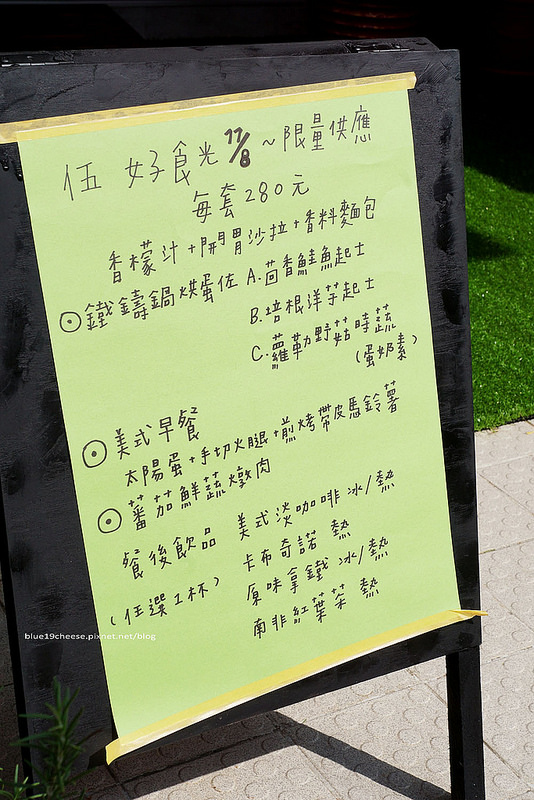 伍 好食光 11/8 ~限量供應
每套280元
香檬汁+開胃沙拉+香料麵包
⊙鐵鑄鍋烘蛋佐 A.茴香鮭魚起士
B.培根洋芋起士
C.蘿勒野菇時蔬
(蛋奶素)
⊙美式早餐
太陽蛋+手切火腿+煎烤帶皮馬鈴薯
⊙蕃茄鮮蔬燉肉
餐後飲品 美式淡咖啡 冰/熱
卡布奇諾 熱
(任選1杯) 原味拿鐵 冰/熱
南非紅葉茶 熱
blue19cheese.pixnet.net/blog